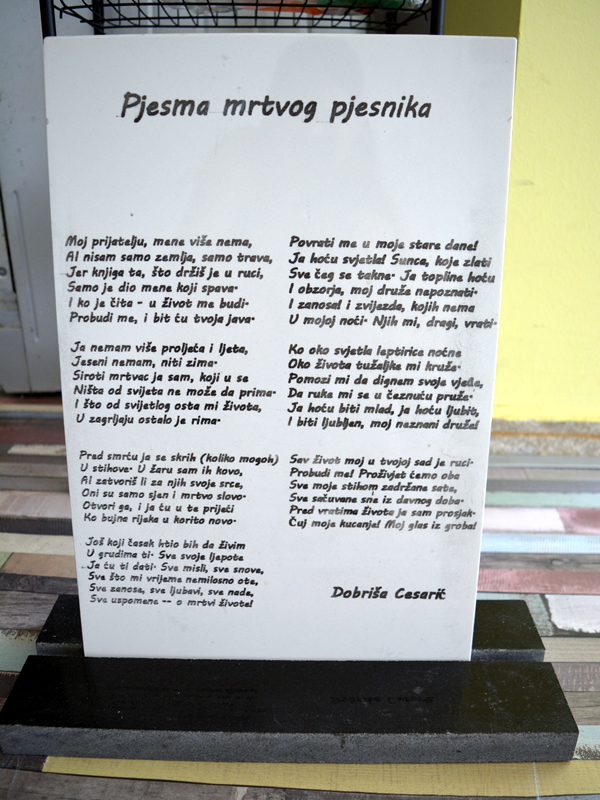 Pjesma mrtvog pjesnika
Moj prijatelju, mene više nema,
Al nisam samo zemlja, samo trava,
Jer knjiga ta, što držiš je u ruci,
Samo je dio mene koji spava·
I ko je čita - u život me budi·
Probudi me, i bit ću tvoja java·
Ja nemam više proljeća i ljeta,
Jeseni nemam, niti zima·
Siroti mrtvac ja sam, koji u se
Ništa od svijeta ne može da prima·
I što od svijetlog osta mi života,
U zagrljaju ostalo je rima·
Pred smrću ja se skrih (koliko mogoh)
U stihove· U žaru sam ih kovo,
Al zatvoriš li za njih svoje srce,
Oni su samo sjen i mrtvo slovo·
Otvori ga, i ja ću u te prijeći
Ko bujna rijeka u korito novo·
Još koji časak htio bih da živim
U grudima ti· Sve svoje ljepote
Ja ću ti dati· Sve misli, sve snove,
Sve što mi vrijeme nemilosno ote,
Sve zanose, sve ljubavi, sve nade,
Sve uspomene -- o mrtvi živote!
Povrati me u moje stare dane!
Ja hoću svjetla! Sunca, koje zlati
Sve čeg se takne· Ja topline hoću
I obzorja, moj druže nepoznati·
I zanosa! i zvijezda, kojih nema
U mojoj noći· Njih mi, dragi, vrati·
Ko oko svjetla leptirice noćne
Oko života tužaljke mi kruže·
Pomozi mi da dignem svoje vjeđa,
Da ruke mi se u čeznuću pruže·
Ja hoću biti mlad, ja hoću ljubit,
I biti ljubljen, moj neznani druže!
Sav život moj u tvojoj sad je ruci·
Probudi me! Proživjet ćemo oba
Sve moje stihom zadržane sate,
Sve sačuvane sne iz davnog doba·
Pred vratima života ja sam prosjak·
Čuj moje kucanje! Moj glas iz groba!
Dobriša Cesarić